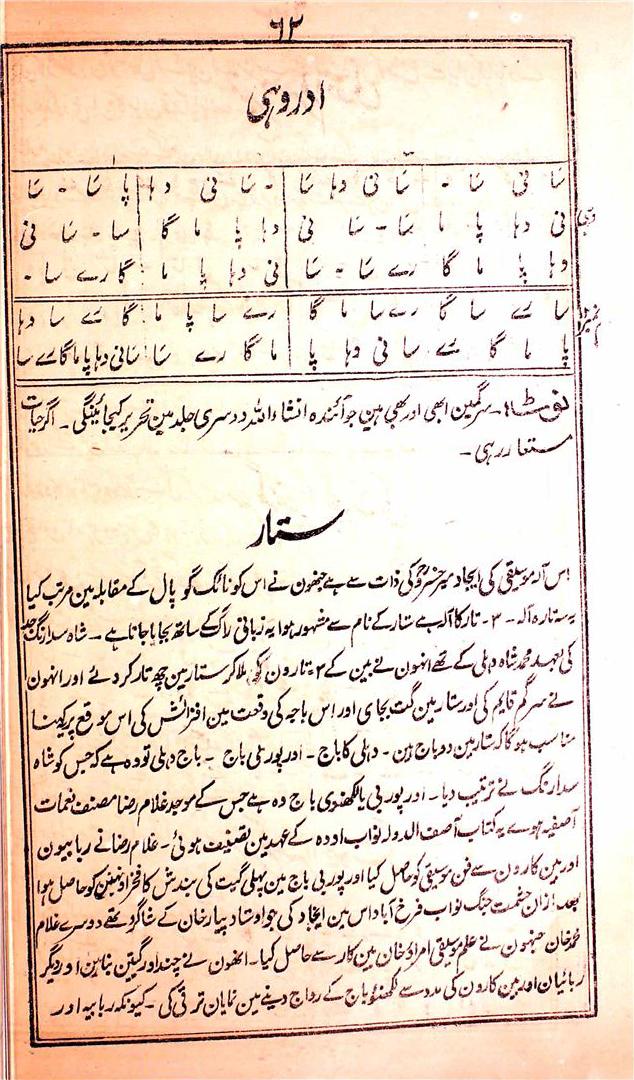 ۶۲
ادروہی
سَا نی سَا - سَا نی دہا سَا - سَا نی دہا پا سَا - سَا
نی دہا پا ما سَا - سَا نی دہا پا ما گا سا - سَا نی
دہا پا ما گا رے سَا - سَا نی دہا پا ما گا رے سا -
سا رے سا گا رے سا ما گا رے سا پا ما گا رے سا دہا
پا ما گا رے سا نی دہا پا ما گا رے سَا سَا نی دہا پا ما گا رے سا
نوٹ :- سرگمین ابھی اور بھی ہین جو آئندہ انشاء اللہ دوسری جلد مین تحریر کیجائینگی - اگر حیات
مستعار رہی -
ستار
اس آلہ موسیقی کی ایجاد میر خسرو کی ذات سے ہے جنھون نے اس کو نائک گوپال کے مقابلہ مین مرتب کیا
یہ ستارہ آلہ - ۳ - تار کا آلہ ہے ستار کے نام سے مشہور ہوا یہ زبانی راگ کے ساتھ بجایا جاتا ہے - شاہ سدارنگ جو
کی بعہد محمد شاہ دہلی کے تھے انہون نے بین کے ۳ تارون کو ملا کر ستار مین چھ تار کر دئے اور انھون
نے سرگم قایم کی اور ستار مین گت بجای اور اس باجہ کی وقعت مین افزائش کی اس موقع پر یہ کہنا
مناسب ہوگا کہ ستار مین دو باج ہین - دہلی کا باج - اور پوربی باج - باج دہلی تو وہ ہے کہ جس کو شاہ
سدارنگ نے ترتیب دیا - اور پوربی یا لکھنوی باج وہ ہے جس کے موجد غلام رضا مصنف نغمات
آصفیہ ہوے یہ کتاب آصف الدولہ نواب اودہ کے عہد مین تصنیف ہوئی - غلام رضا نے ربابیون
اور بین کارون سے فن موسیقی کو حاصل کیا اور پوربی باج مین پہلی گت کی بندش کا فخر اونھین کو حاصل ہوا
بعد ازان حشمت جنگ نواب فرخ آباد اس مین ایجاد کی جو اوستاد پیار خان کے شاگرد تھے دوسرے غلام
محمد خان جنہون نے علم موسیقی امراؤ خان بین کار سے حاصل کیا - انھون نے چند اور گتین بنائین اور دیگر
ربابیان اور بین کارون کی مدد سے لکھنؤ باج کے رواج دینے مین نمایان ترقی کی - کیونکہ ربابیہ اور